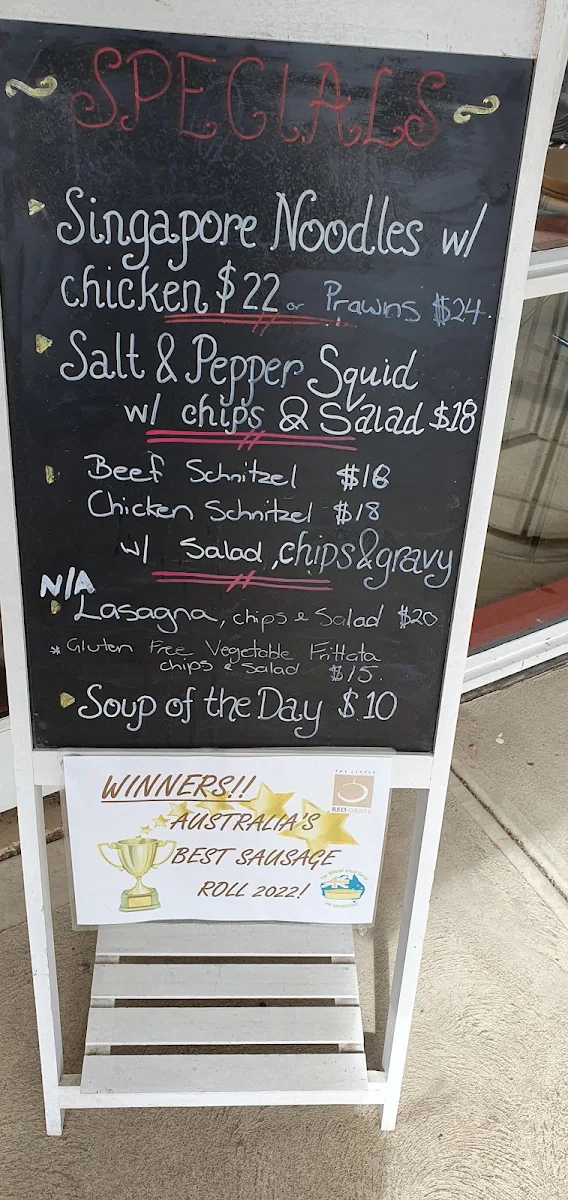 SPECIALS
Singapore Noodles w/
chicken $22 or Prawns $24.
Salt & Pepper Squid
w/ chips & Salad $18
Beef Schnitzel $16
Chicken Schnitzel $18
w/ Salad, chips & gravy
N/A
Lasagna, chips & Salad $20
* Gluten Free Vegetable Frittata
chips & Salad $15.
Soup of the Day $10
WINNERS!!
AUSTRALIA'S
BEST SAUSAGE
ROLL 2022!
THE LITTLE
RED GRAPE